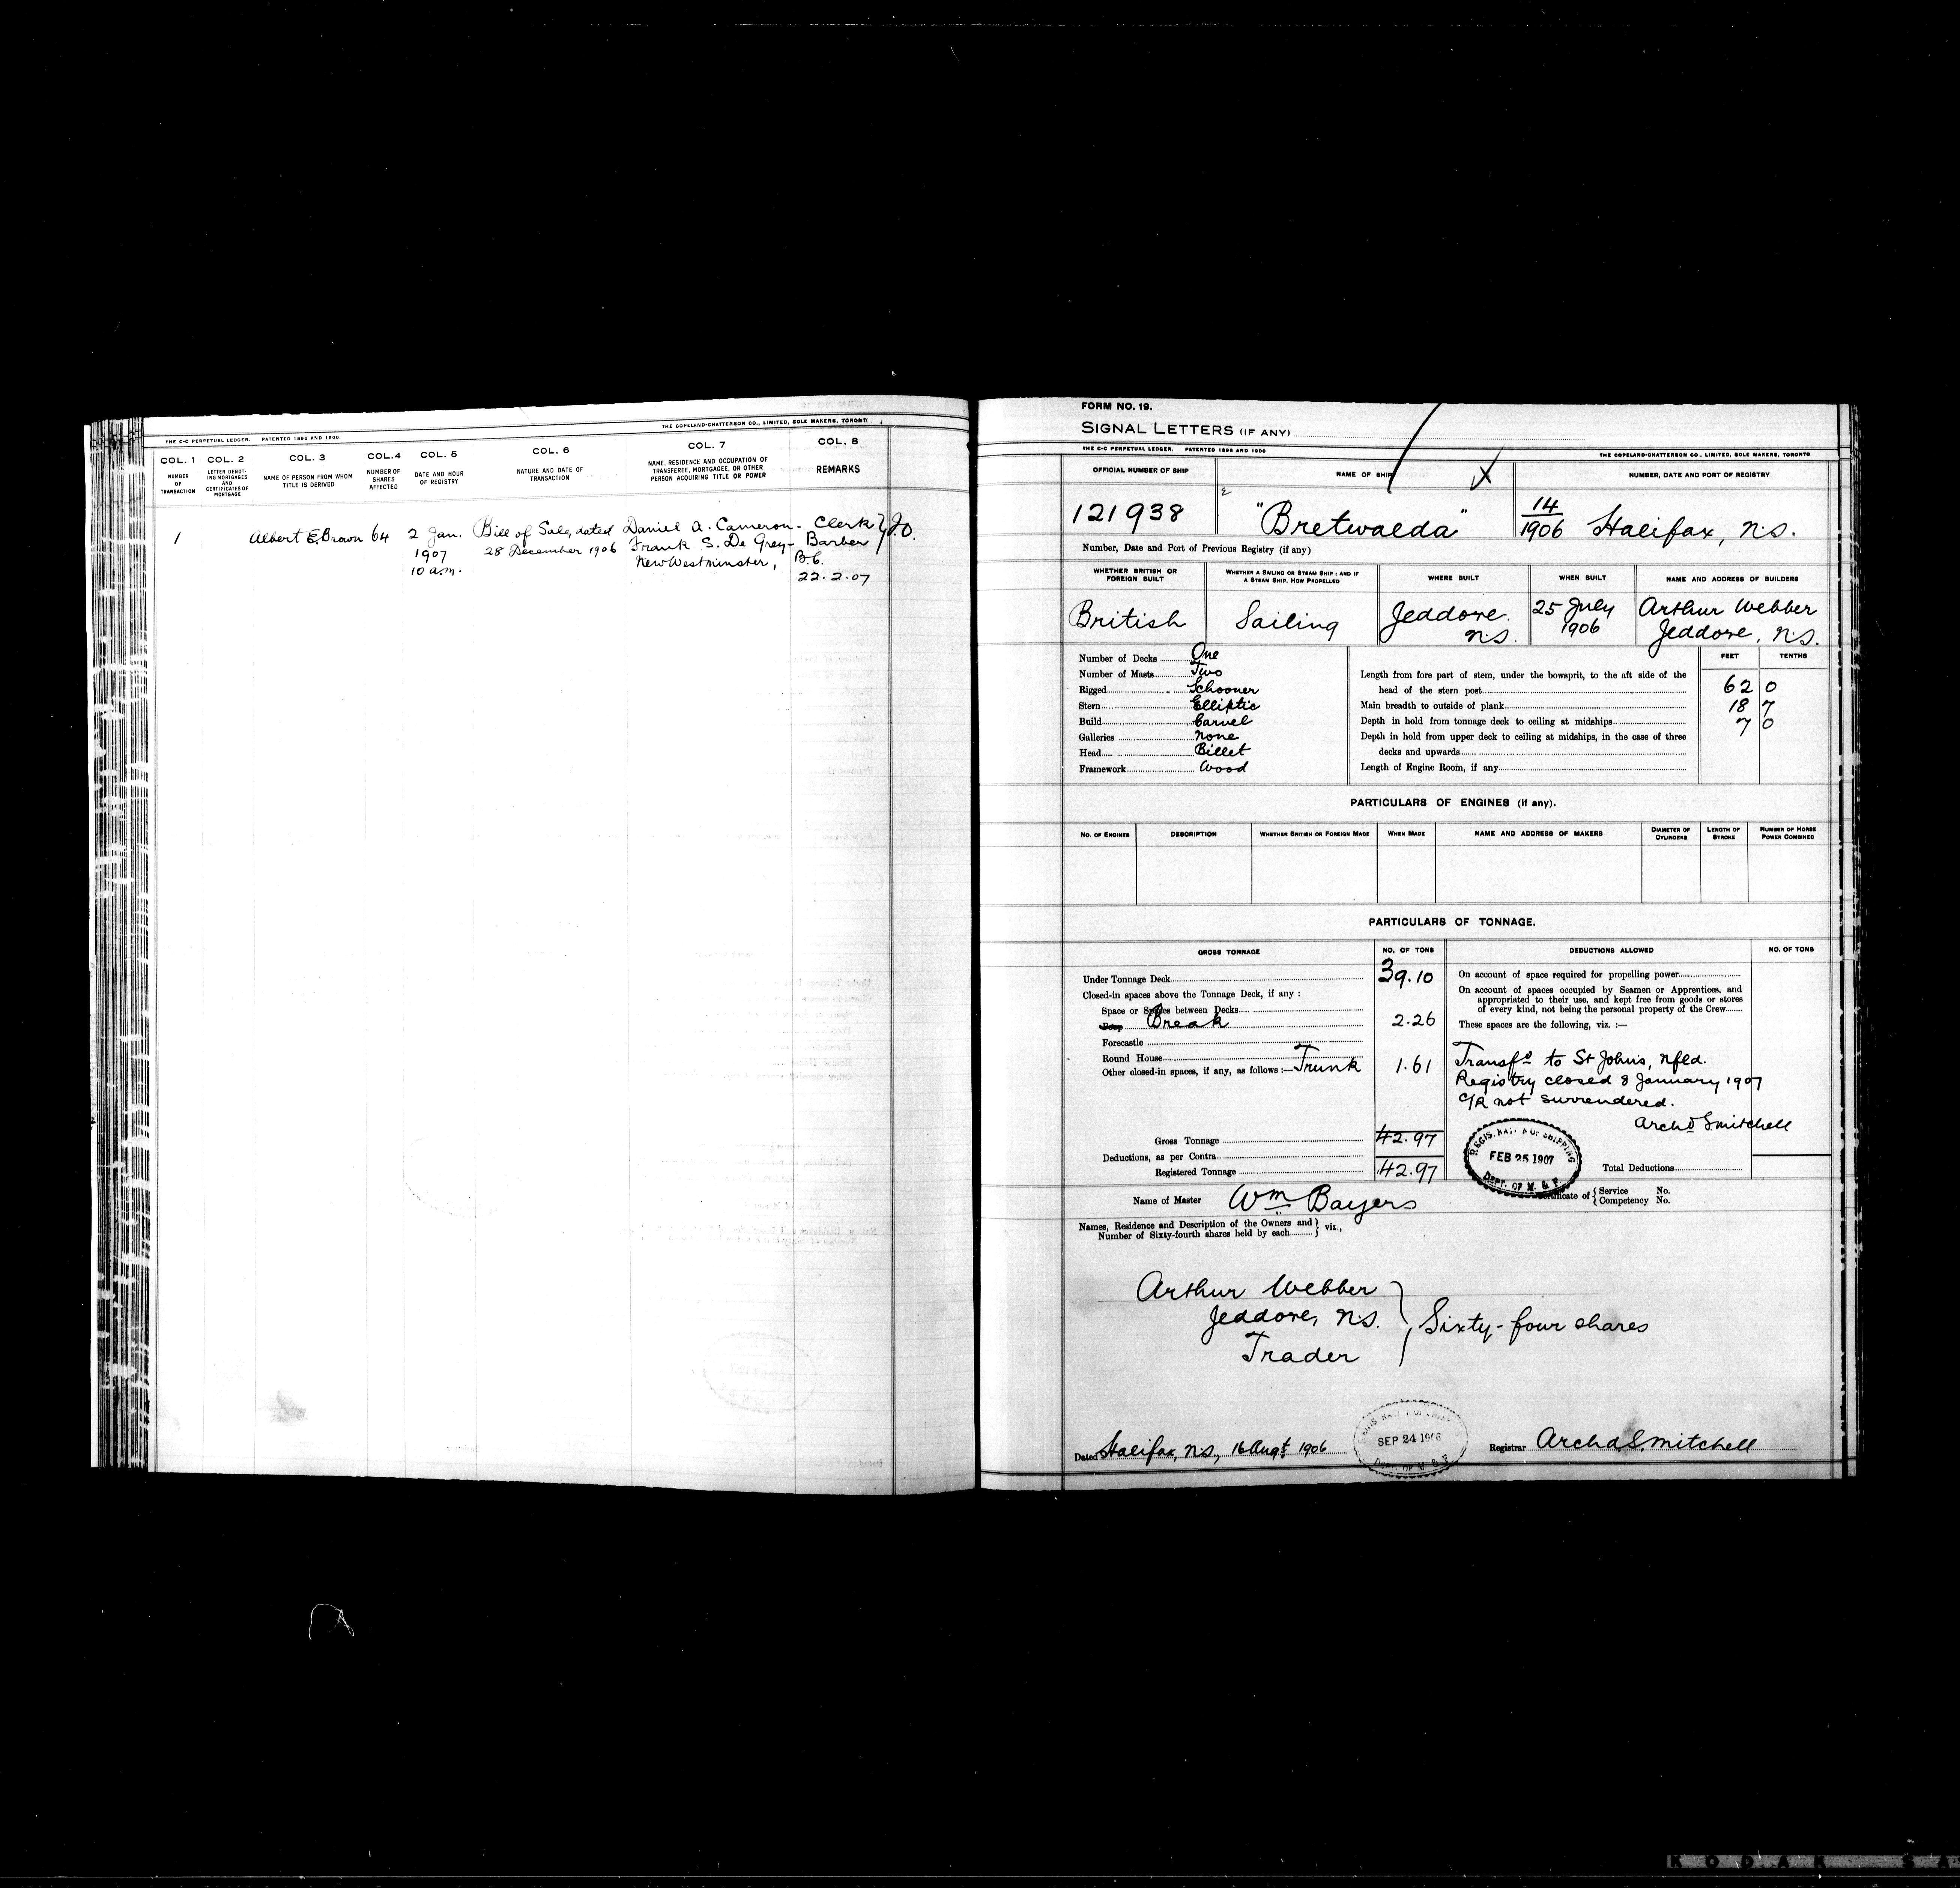 THE C-C PERPETUAL LEDGER. PATENTED 1896 AND 1900.
THE COPELAND-CHATTERSON CO., LIMITED, SOLE MAKERS, TORONTO
COL. 1 COL. 2 COL. 3 COL. 4 COL. 5 COL. 6 COL. 7 COL. 8
NUMBER OF TRANSACTION
LETTER DENOTING MORTGAGES AND CERTIFICATES OF MORTGAGE
NAME OF PERSON FROM WHOM TITLE IS DERIVED
NUMBER OF SHARES AFFECTED
DATE AND HOUR OF REGISTRY
NATURE AND DATE OF TRANSACTION
NAME, RESIDENCE AND OCCUPATION OF TRANSFEREE, MORTGAGEE, OR OTHER PERSON ACQUIRING TITLE OR POWER
REMARKS
1 Albert E. Brown 64 2 Jan. Bill of Sale, dated Daniel A. Cameron - Clerk } J.O.
1907 28 December 1906 Frank S. De Grey - Barber
10 a.m. New Westminster, B.C.
22.2.07
FORM NO. 19.
SIGNAL LETTERS (IF ANY)
THE C-C PERPETUAL LEDGER. PATENTED 1896 AND 1900
THE COPELAND-CHATTERSON CO., LIMITED, SOLE MAKERS, TORONTO
OFFICIAL NUMBER OF SHIP NAME OF SHIP NUMBER, DATE AND PORT OF REGISTRY
121938 "Bretwalda" 14/1906 Halifax, N.S.
Number, Date and Port of Previous Registry (if any)
WHETHER BRITISH OR FOREIGN BUILT
WHETHER A SAILING OR STEAM SHIP; AND IF A STEAM SHIP, HOW PROPELLED
WHERE BUILT
WHEN BUILT
NAME AND ADDRESS OF BUILDERS
British Sailing Jeddore. 25 July Arthur Webber
N.S. 1906 Jeddore, N.S.
FEET TENTHS
Number of Decks One
Number of Masts Two
Rigged Schooner
Stern Elliptic
Build Carvel
Galleries None
Head Billet
Framework Wood
Length from fore part of stem, under the bowsprit, to the aft side of the
head of the stern post 62 0
Main breadth to outside of plank 18 7
Depth in hold from tonnage deck to ceiling at midships 7 0
Depth in hold from upper deck to ceiling at midships, in the case of three
decks and upwards
Length of Engine Room, if any
PARTICULARS OF ENGINES (if any).
NO. OF ENGINES DESCRIPTION WHETHER BRITISH OR FOREIGN MADE WHEN MADE NAME AND ADDRESS OF MAKERS DIAMETER OF CYLINDERS LENGTH OF STROKE NUMBER OF HORSE POWER COMBINED
PARTICULARS OF TONNAGE.
GROSS TONNAGE NO. OF TONS DEDUCTIONS ALLOWED NO. OF TONS
Under Tonnage Deck 39.10
Closed-in spaces above the Tonnage Deck, if any :
Space or Spaces between Decks
Poop Break 2.26
Forecastle
Round House
Other closed-in spaces, if any, as follows :— Trunk 1.61
Gross Tonnage 42.97
Deductions, as per Contra
Registered Tonnage 42.97
On account of space required for propelling power
On account of spaces occupied by Seamen or Apprentices, and
appropriated to their use, and kept free from goods or stores
of every kind, not being the personal property of the Crew
These spaces are the following, viz. :—
Transfd to St Johns, Nfld.
Registry closed 8 January 1907
C/R not surrendered.
Archd Smitchell
REGISTRAR OF SHIPPING
FEB 25 1907
DEPT. OF M. & F.
Total Deductions
Name of Master Wm Bayers
Certificate of { Service No.
Competency No.
Names, Residence and Description of the Owners and } viz.,
Number of Sixty-fourth shares held by each
Arthur Webber
Jeddore, N.S. } Sixty-four shares
Trader
Dated Halifax, N.S., 16 Augt 1906
SEP 24 1906
DEPT. OF M. & F.
Registrar Archd. S. Mitchell
KODAK SA